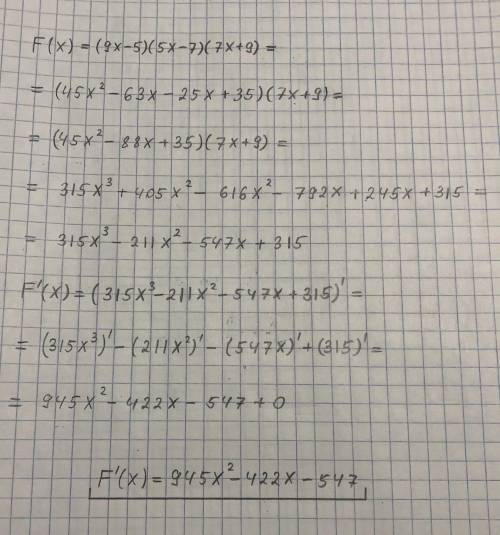 F(x) = (9x-5)(5x-7)(7x+9) =
= (45x² - 63x - 25x + 35)(7x+9) =
= (45x² - 88x + 35)(7x+9) =
= 315x³ + 405x² - 616x² - 792x + 245x + 315 =
= 315x³ - 211x² - 547x + 315
F'(x) = (315x³ - 211x² - 547x + 315)' =
= (315x³)' - (211x²)' - (547x)' + (315)' =
= 945x² - 422x - 547 + 0
F'(x) = 945x² - 422x - 547